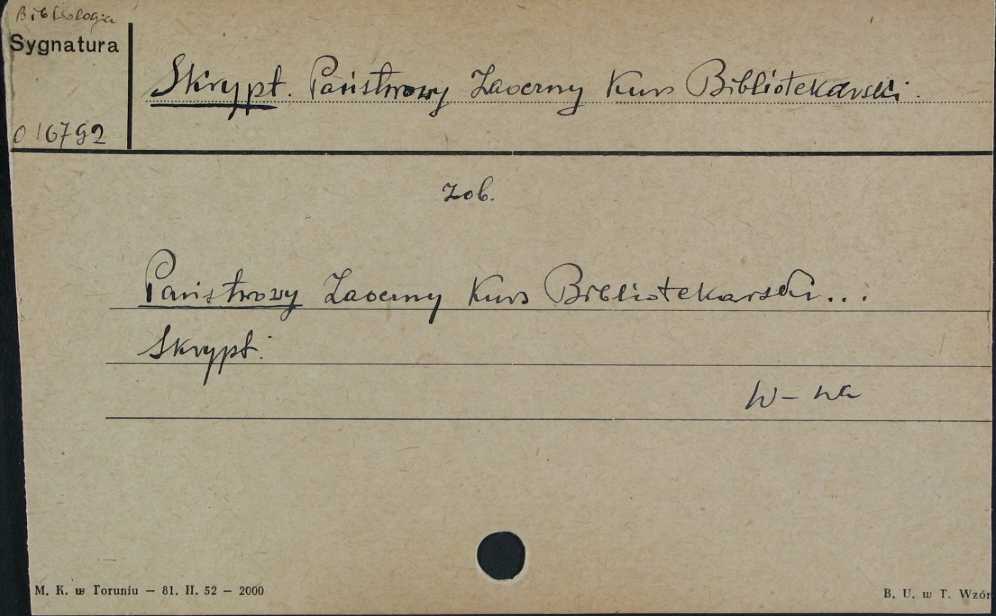 Bibliologia
Sygnatura
Skrypt. Państwowy Zaoczny Kurs Bibliotekarski.
016792
zob.
Państwowy Zaoczny Kurs Bibliotekarski...
Skrypt.
W-wa
M. K. w Toruniu — 81. II. 52 — 2000
B. U. w T. Wzór